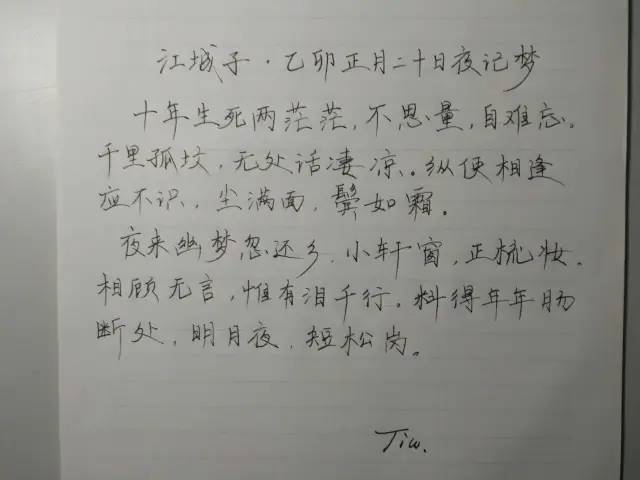 江城子·乙卯正月二十日夜记梦
十年生死两茫茫,不思量,自难忘。
千里孤坟,无处话凄凉。纵使相逢
应不识,尘满面,鬓如霜。
夜来幽梦忽还乡,小轩窗,正梳妆。
相顾无言,惟有泪千行。料得年年肠
断处,明月夜,短松岗。
Tiw.